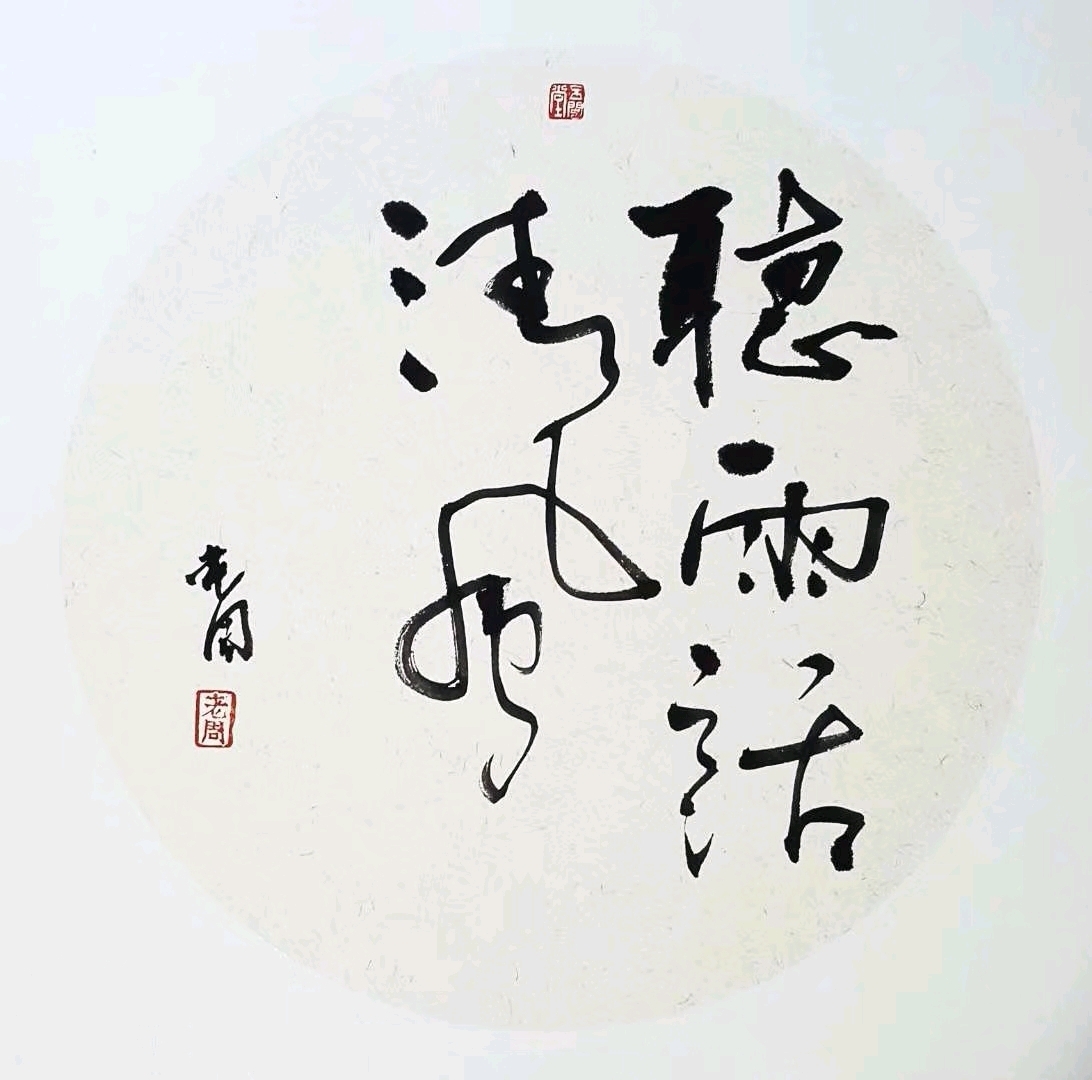 聽雨話
清風
老周
老周